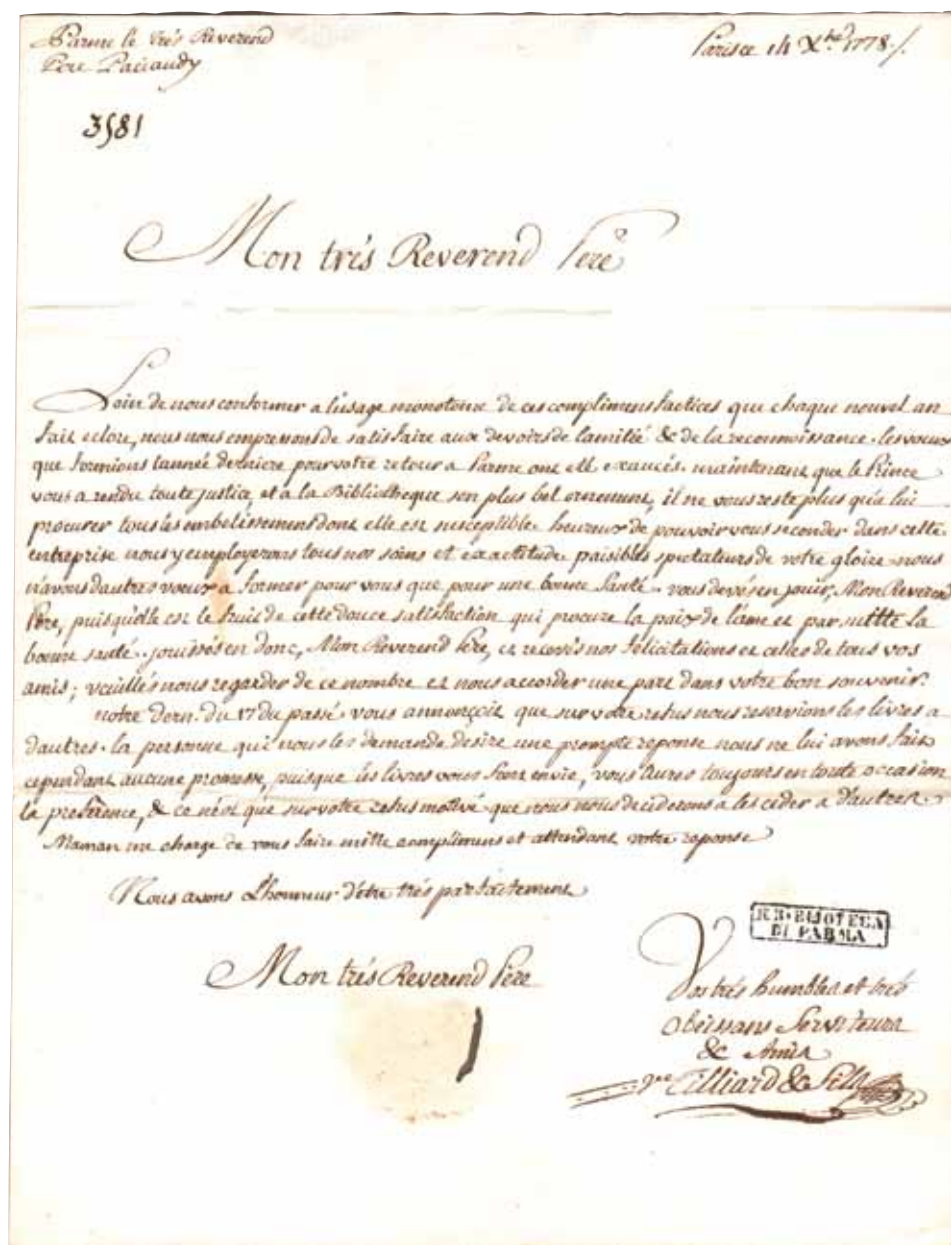 Parme le trés Reverend
Pere Paciaudy
Paris ce 14 Xbre 1778 ./.
3581
Mon trés Reverend Pere
Loin de nous conformer a l'usage monotone de ces complimens factices que chaque nouvel an
fait eclore, nous nous emprenons de satisfaire aux devoirs de lamitié & de la reconnoissance. les voeux
que formions l'année derniere pour votre retour a Parme ont eté exaucés. maintenant que le Prince
vous a rendu toute justice, et a la Bibliotheque son plus bel ornement, il ne vous reste plus qu'a lui
procurer tous les embelissemens dont elle est susceptible. heureux de pouvoir vous seconder dans cette
entreprise nous y employerons tous nos soins et exactitude. paisibles spectateurs de votre gloire nous
n'avons d'autres voeux a former pour vous que pour une bonne santé. vous devés en jouir, Mon Reverend
Pere, puisqu'elle est le fruit de cette douce satisfaction qui procure la paix de l'ame et par suitte la
bonne santé. jouissés en donc, Mon Reverend Pere, et recevés nos felicitations et celles de tous vos
amis; veuillés nous regarder de ce nombre et nous accorder une part dans votre bon souvenir.
notre dern. du 17 du passé vous annonçoit que sur votre refus nous reservions les livres a
d'autres. la personne qui nous les demande desire une prompte reponse nous ne lui avons fait
cependant aucune promesse, puisque les livres vous font envie, vous aures toujours en toute occasion
la preference, & ce n'est que sur votre refus motivé que nous nous deciderons a les ceder a d'autres.
Maman me charge de vous faire mille complimens et attendant votre reponse
Nous avons L'honneur d'être trés parfaitement
Mon trés Reverend Pere
R. BIBLIOTECA
DI PARMA
Vos trés humbles et trés
Obeissans Serviteurs
& Amis
Ve Tilliard & Fils